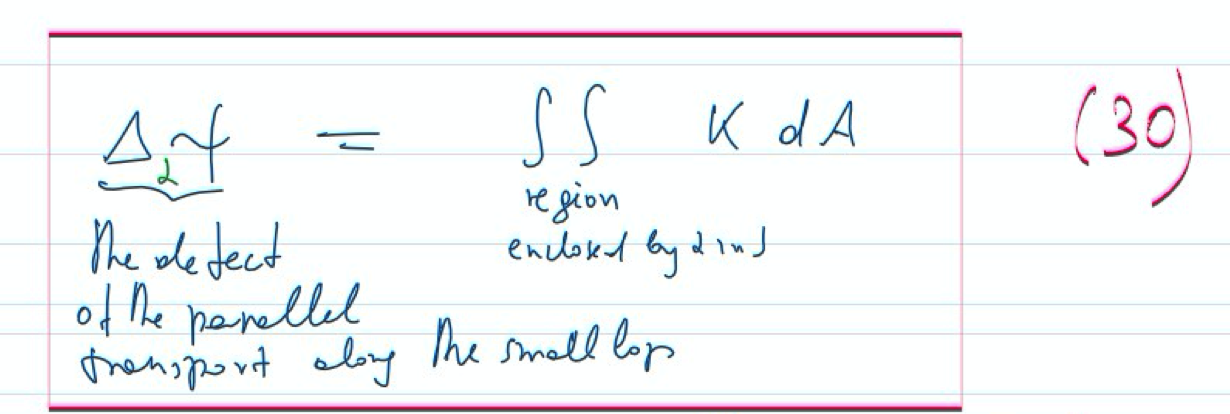 Δ_α ψ = ∬ K dA (30)
region
enclosed by α in S
The defect
of the parallel
transport along the small lop